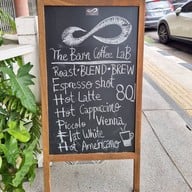 The Barn Coffee LaB
Roast•BLEND•BREW
Espresso shot
Hot Latte 80.
Hot Cappucino
Piccolo Vienna
Flat White
Hot Americano